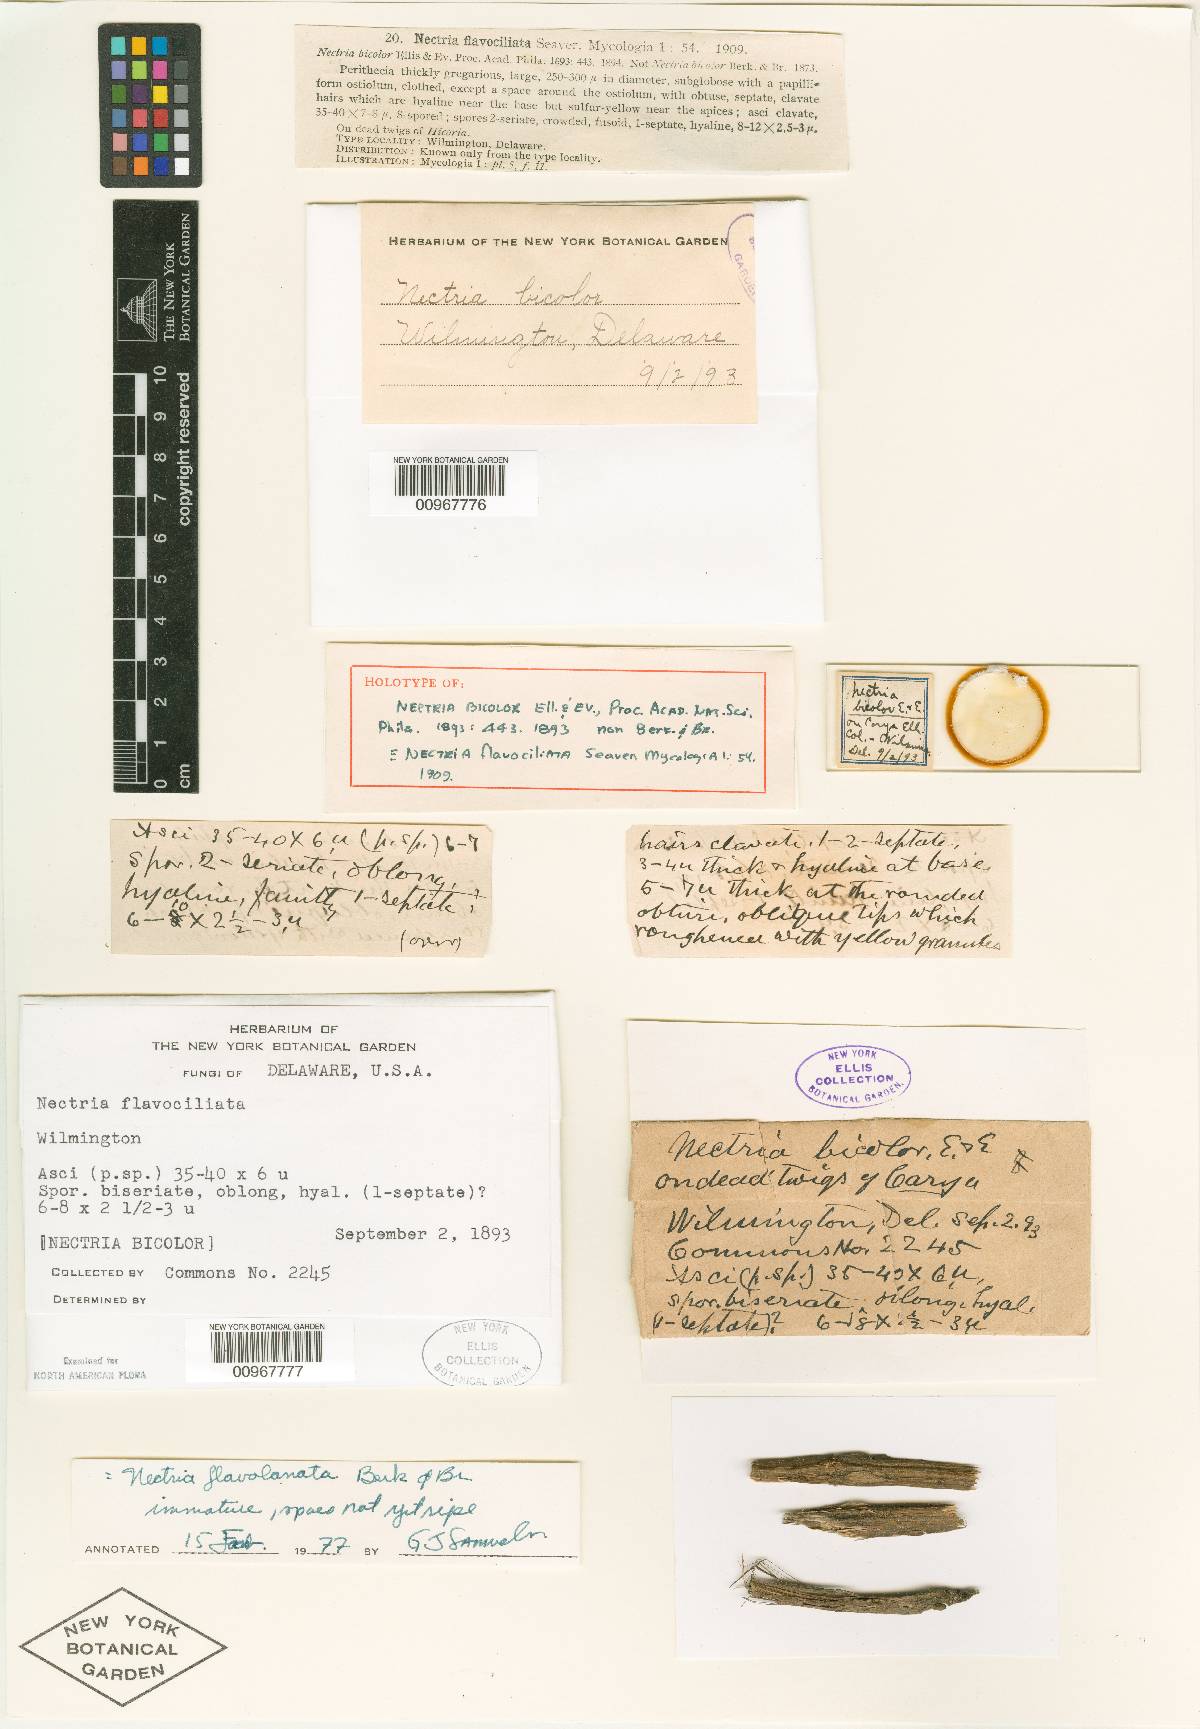 20. Nectria flavociliata Seaver. Mycologia 1: 54. 1909.
Nectria bicolor Ellis & Ev. Proc. Acad. Phila. 1893: 443. 1894. Not Nectria bicolor Berk. & Br. 1873.
Perithecia thickly gregarious, large, 250-300 µ in diameter, subglobose with a papilli-
form ostiolum, clothed, except a space around the ostiolum, with obtuse, septate, clavate
hairs which are hyaline near the base but sulfur-yellow near the apices; asci clavate,
35-40 × 7-8 µ, 8-spored; spores 2-seriate, crowded, fusoid, 1-septate, hyaline, 8-12 × 2.5-3 µ.
On dead twigs of Hicoria.
TYPE LOCALITY: Wilmington, Delaware.
DISTRIBUTION: Known only from the type locality.
ILLUSTRATION: Mycologia 1: pl. 5, f. 11.
THE NEW YORK
BOTANICAL GARDEN
10
9
8
7
6
5
4
3
2
1
0
cm
copyright reserved
HERBARIUM OF THE NEW YORK BOTANICAL GARDEN
Nectria bicolor
Wilmington, Delaware
9/2/93
NEW YORK BOTANICAL GARDEN
00967776
HOLOTYPE OF:
NECTRIA BICOLOR Ell. & EV., Proc. ACAD. NAT. Sci.
Phila. 1893: 443. 1893 non Berk. & Br.
≡ NECTRIA flavociliATA Seaver MycologiA 1: 54.
1909.
Nectria
bicolor E. & E.
on Carya Ell.
Col. - Wilming.
Del. 9/2/93
Asci 35-40 x 6 u (p.sp.) 6-7
spor. 2-seriate, oblong,
hyaline, faintly 1-septate?
6-8 10 x 2 1/2 - 3 u
(over)
hairs clavate, 1-2-septate,
3-4u thick & hyaline at base
5-7u thick at the rounded
obtuse, oblique tips which
roughened with yellow granules
HERBARIUM OF
THE NEW YORK BOTANICAL GARDEN
FUNGI OF DELAWARE, U.S.A.
Nectria flavociliata
Wilmington
Asci (p.sp.) 35-40 x 6 u
Spor. biseriate, oblong, hyal. (1-septate)?
6-8 x 2 1/2-3 u
[NECTRIA BICOLOR] September 2, 1893
COLLECTED BY Commons No. 2245
DETERMINED BY
NEW YORK BOTANICAL GARDEN
00967777
Examined for
NORTH AMERICAN FLORA
NEW YORK
ELLIS
COLLECTION
BOTANICAL GARDEN
NEW YORK
ELLIS
COLLECTION
BOTANICAL GARDEN.
Nectria bicolor, E. & E
on dead twigs of Carya
Wilmington, Del. Sep. 2. 93
Commons No. 2245
Asci (p.sp.) 35-40 x 6u,
spor. biseriate, oblong, hyal.
(1-septate)? 6-8 x 2 1/2 - 3u
= Nectria flavolanata Berk & Br.
immature, spores not yet ripe
ANNOTATED 15 Feb. 1977 BY G J Samuels
NEW YORK
BOTANICAL
GARDEN